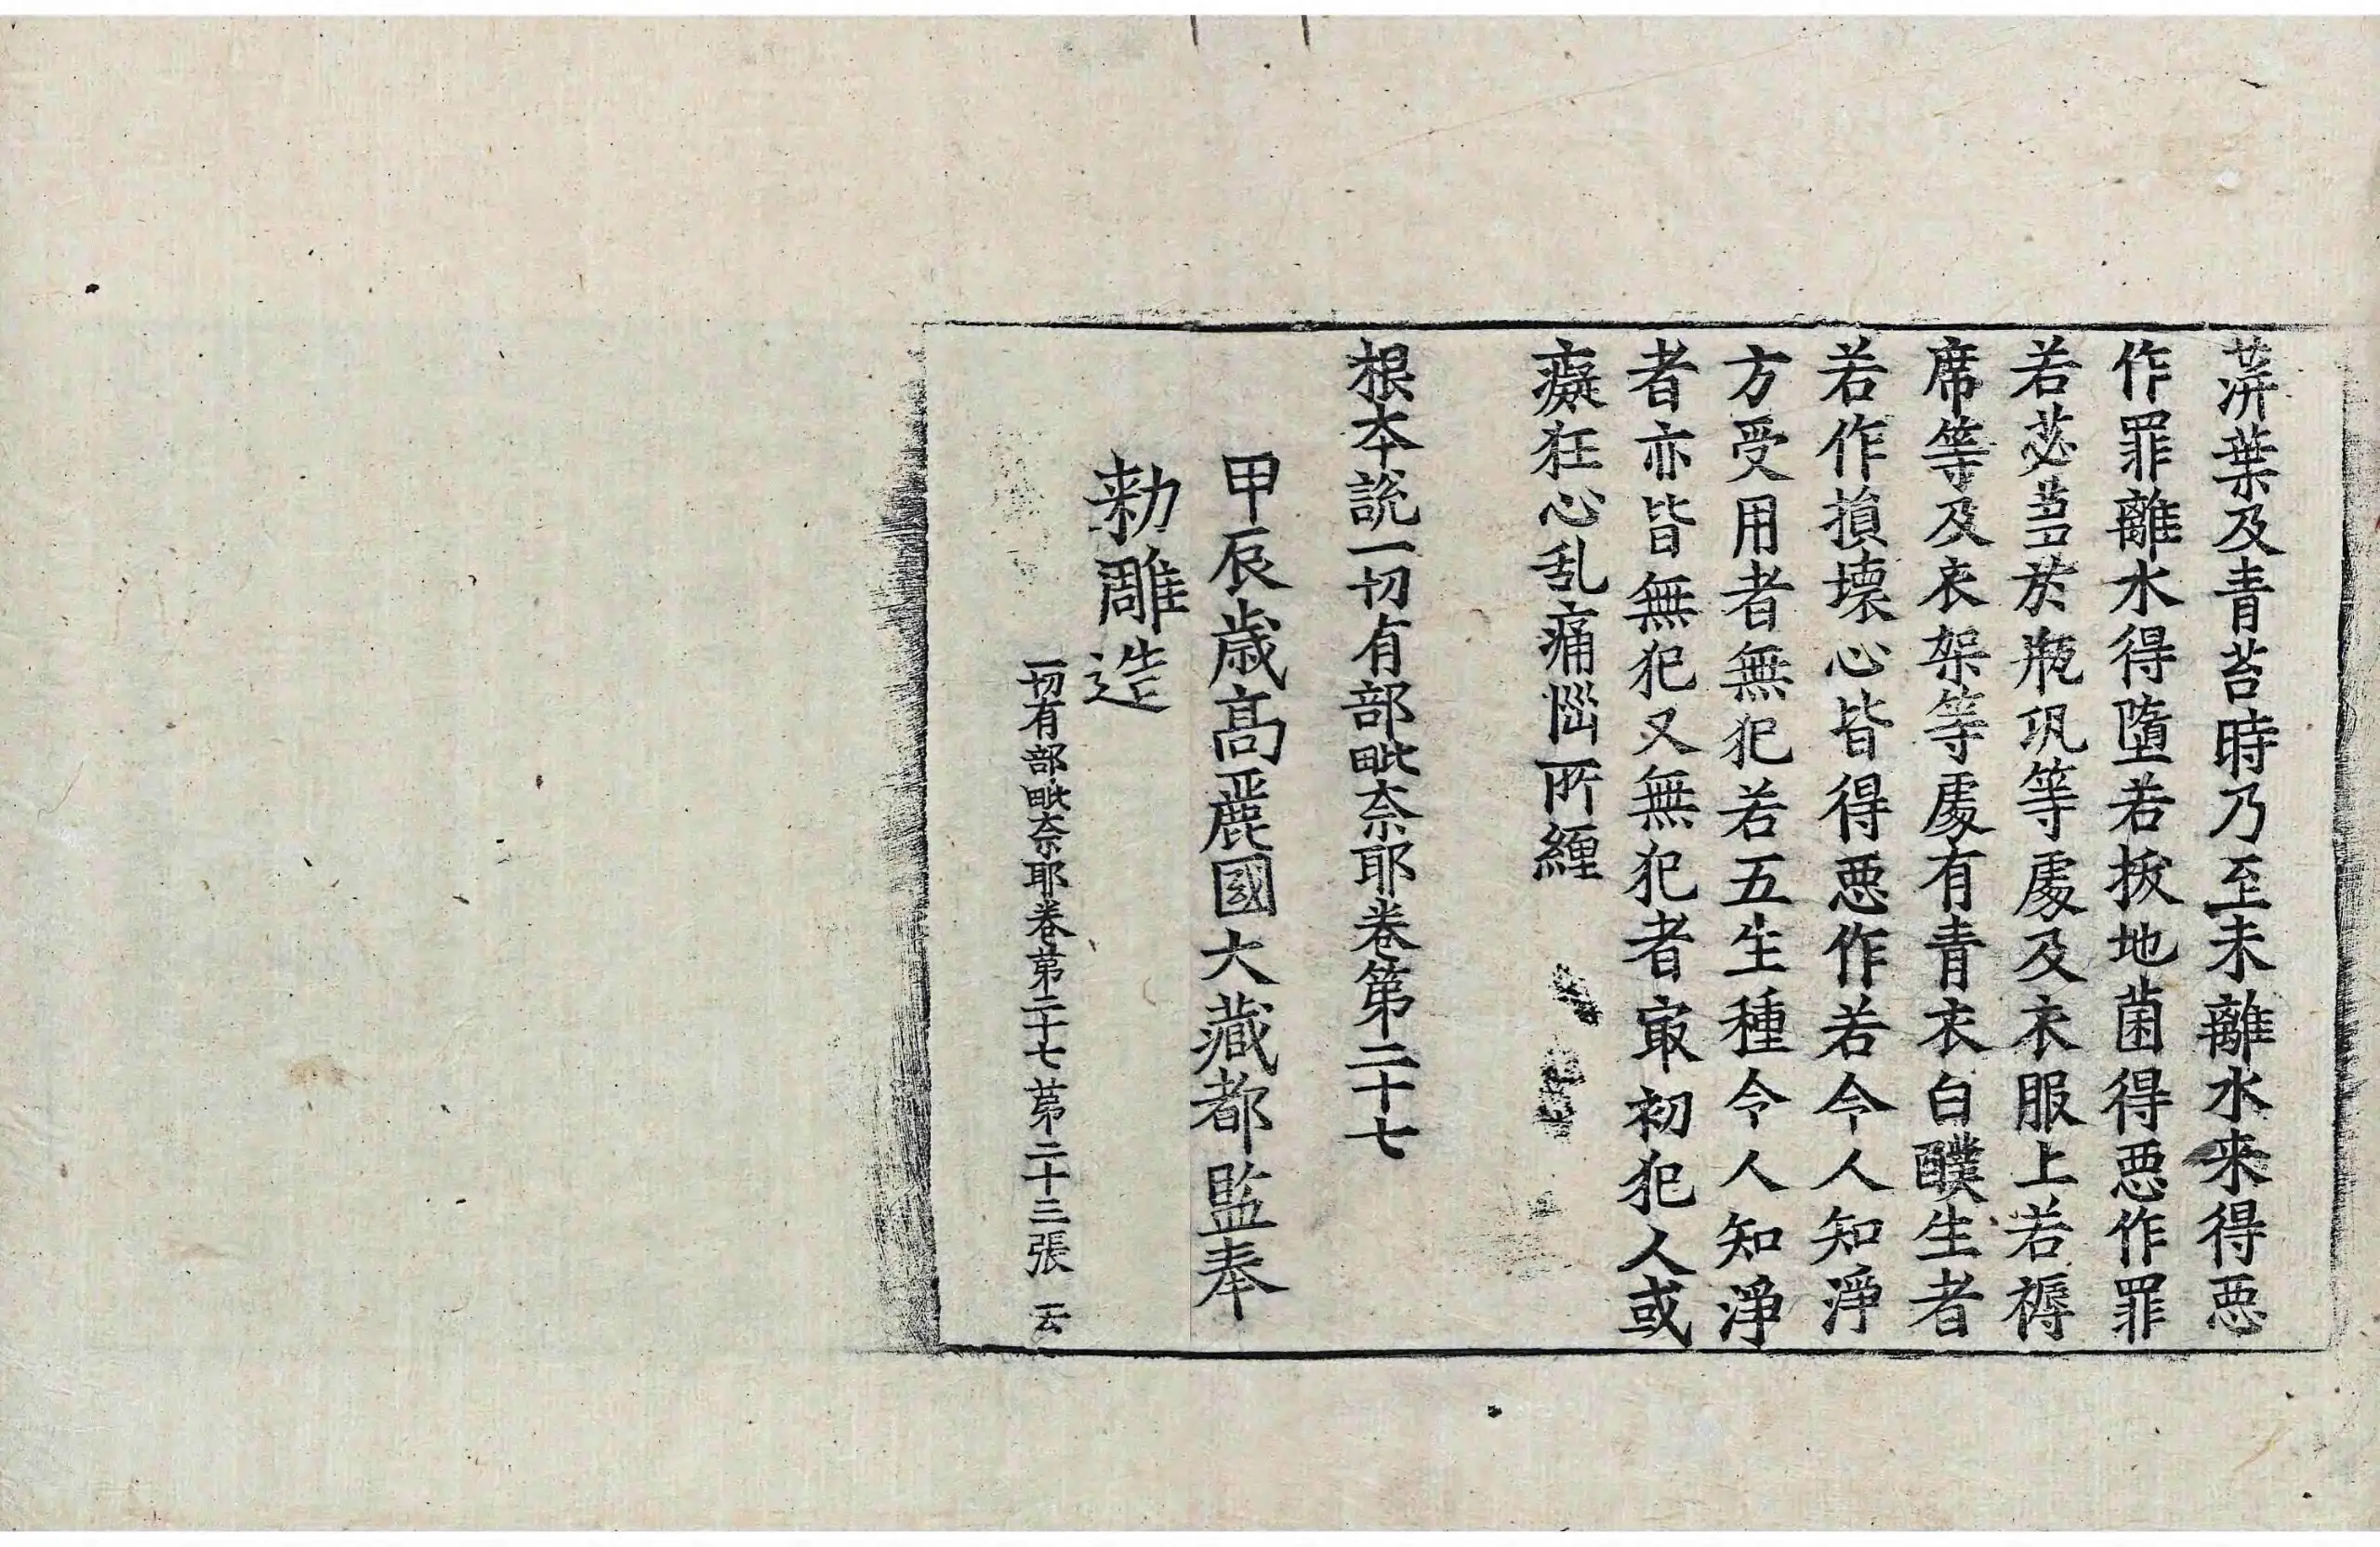 蓱葉及青苔時乃至未離水来得惡
作罪離水得墮若拔地菌得惡作罪
若苾蒭於瓶瓨等處及衣服上若褥
席等及衣架等處有青衣白醭生者
若作損壞心皆得惡作若令人知淨
方受用者無犯若五生種令人知淨
者亦皆無犯又無犯者冣初犯人或
癡狂心乱痛惱所纏
根本說一切有部毗奈耶卷第二十七
甲辰歲高麗國大藏都監奉
勑雕造
一切有部毗奈耶卷第二十七 第二十三張 云